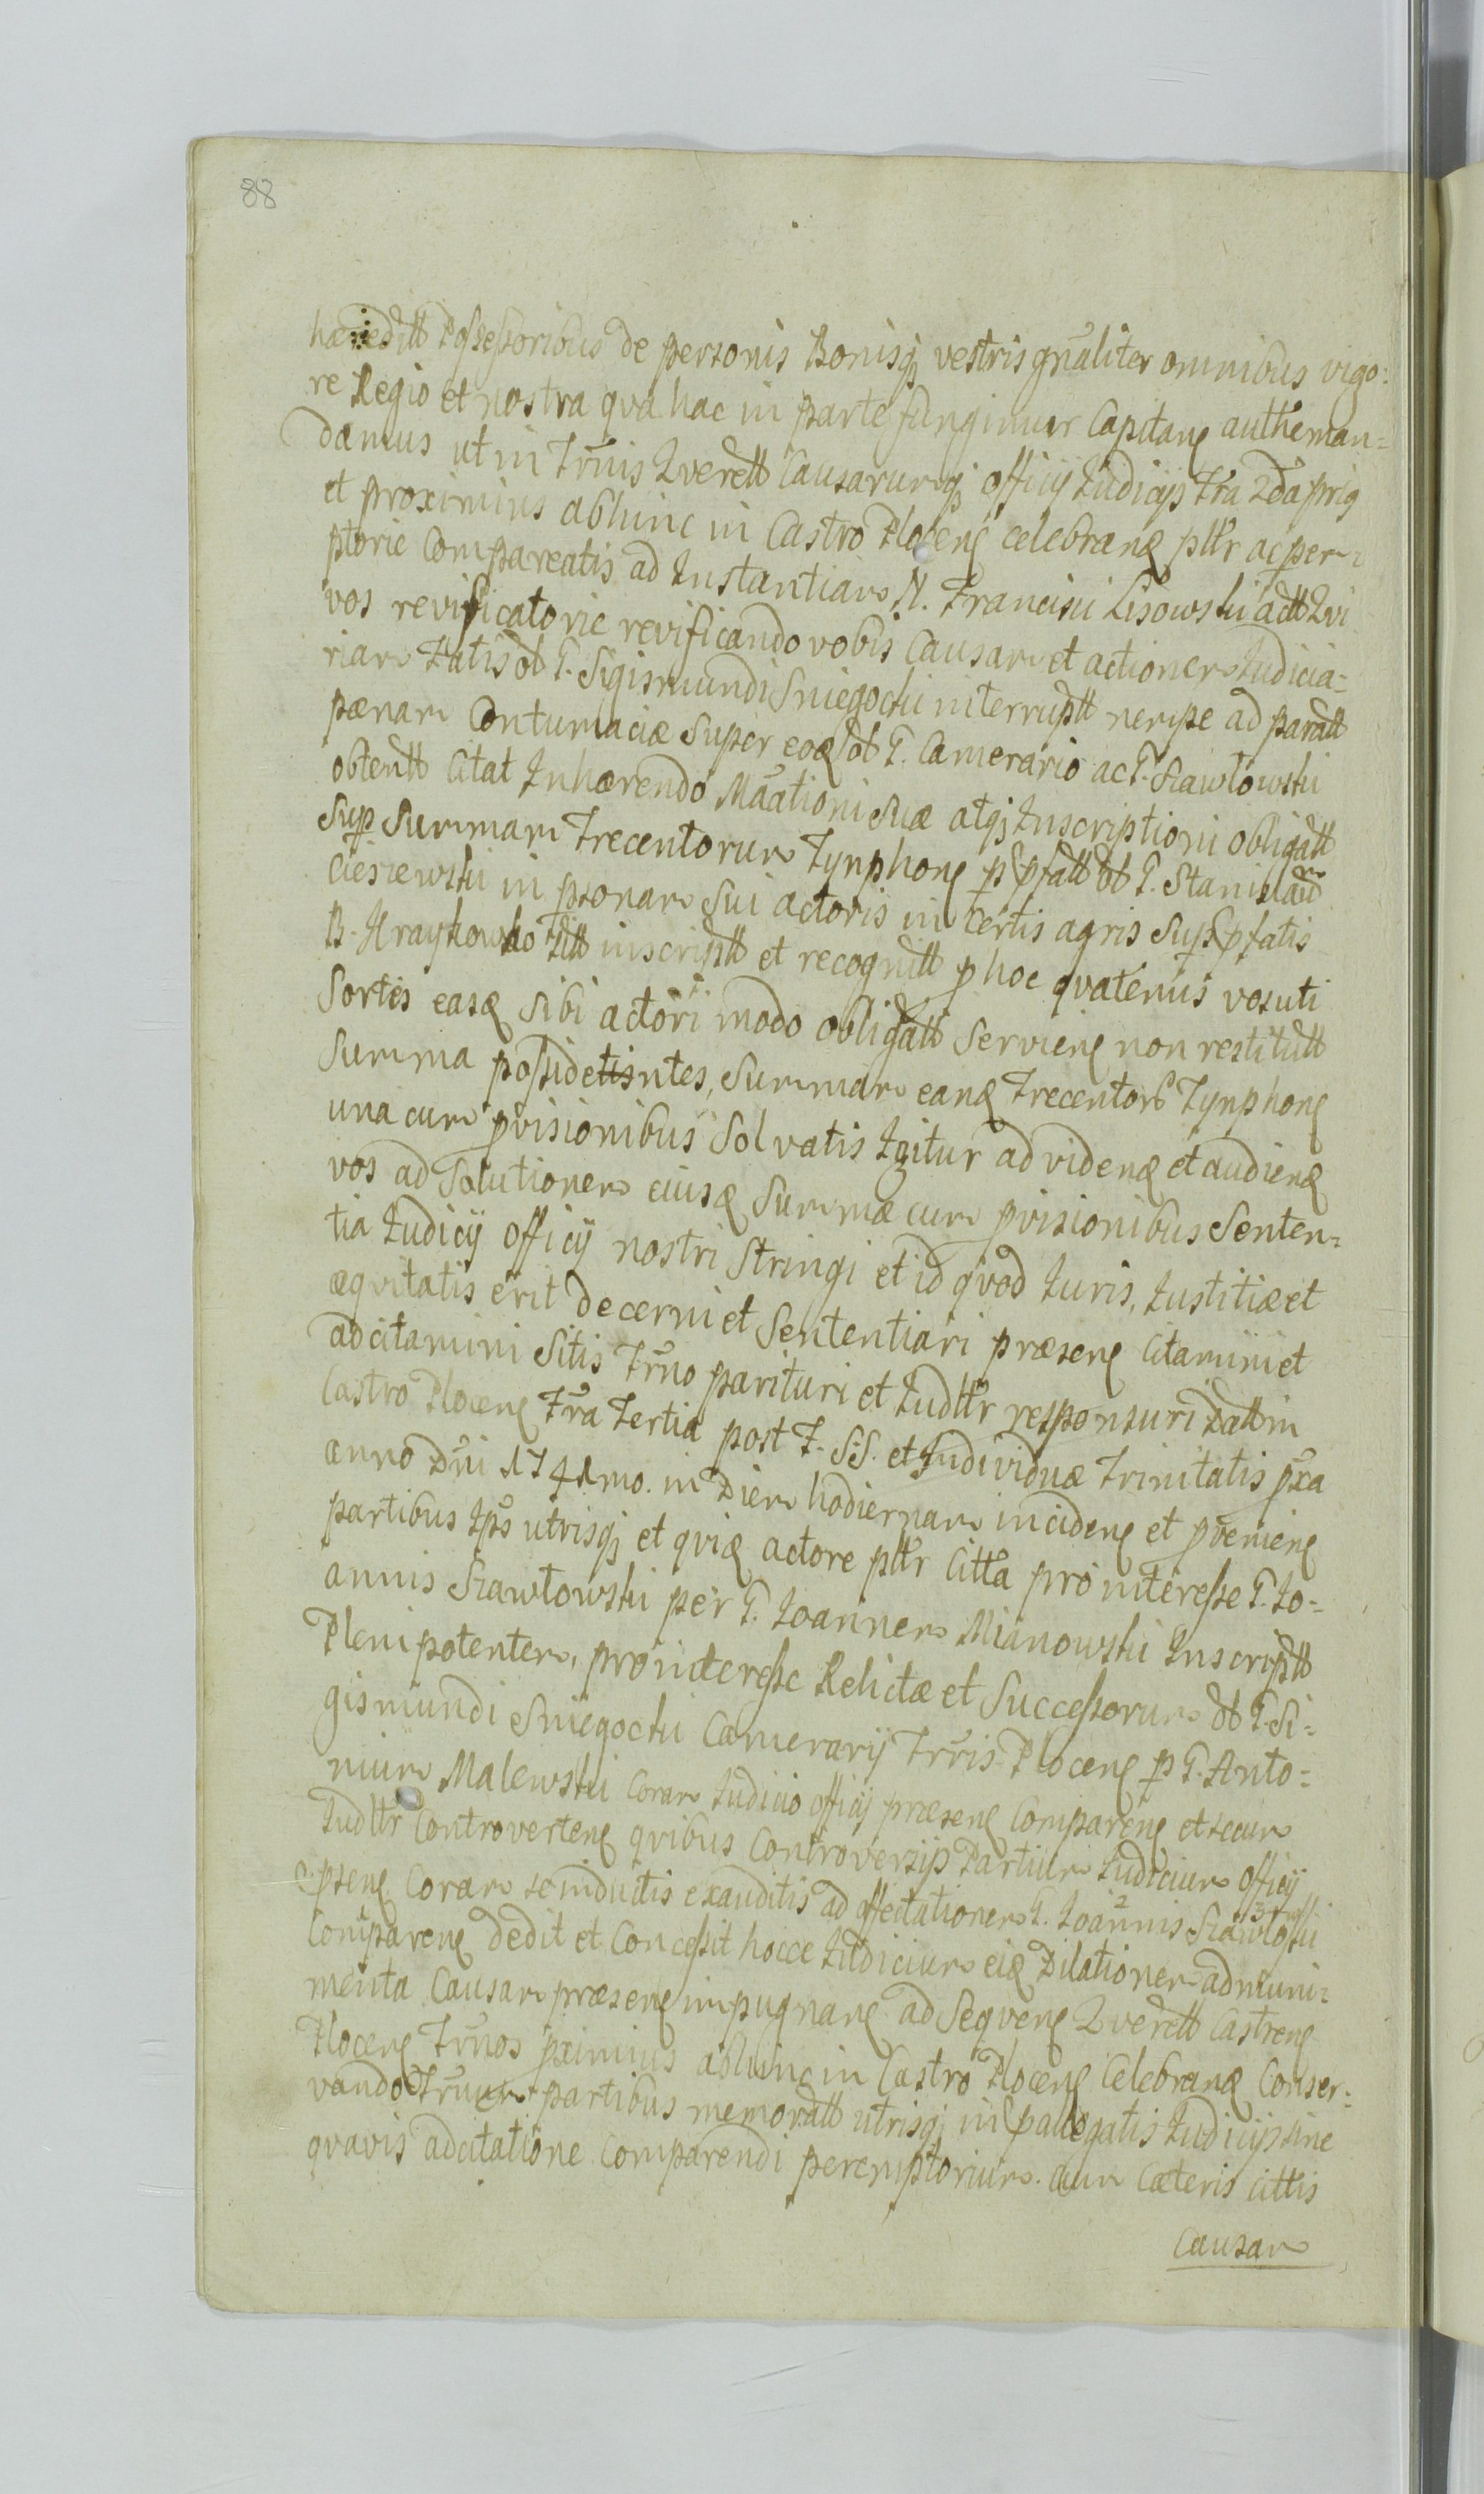 88
hæreditt Possessoribus de personis Bonisqj vestris gnãliter omnibus vigo=
re Regio et nostra qva hac in parte fungimur Capitane authe man=
damus ut in Trm̃is Qverell Causarumqj officij Judicijs Fra 2da prig
et proximius abhinc in Castro Plocenẽ celebranẽ pttr ac per=
ptorie Compareatis ad Instantiam N. Francisci Lisowski actt Qvi
vos revificatorie revificando vobis Causam et actionem Judicia=
riam Fatis ol G. Sigismundi Sniegocki interruptt nempe ad paratt
pænam Contumaciæ super eosd ol G. Camerario ac G. Szawłowski
obtentt Citat Inhærendo Maãtioni suæ atqj Inscriptioni obligatt
Sup Summam Trecentorum Tynphonẽ p pfatt ol G. Stanislaum
Cieszewski in psonam sui actoris in certis agris sup pfatis
B. Kraykowko ditt inscriptt et recognitt p hoc qvatenus vos uti
Sortis easd Sibi actori modo obligatt Servienẽ non restitutt
Summa possidentes, Summam eand Trecentor Tynphonẽ
una cum pvisionibus Solvatis Igitur ad videnđ et audienđ
vos ad Solutionem eiusd Summæ cum pvisionibus Senten=
tia Judicij officij nostri Stringi et id qvod Juris, Justitiæ et
æqvitatis erit decerni et Sententiari præsenẽ Citamini et
adcitamini Sitis Trm̃o parituri et Judttr responsuri Datt in
Castro Plocenẽ Fra Tertia post F. S:S. et Individuæ Trinitatis pxa
anno Dn̄i 1741mo. in Diem hodiernam incidenẽ et pvenienẽ
partibus Ips utrisqj et qvid actore pttr Citta pro interesse G. Jo=
annis Szawłowski per G. Joannem Mianowski Inscriptt
Plenipotentem, pro interesse Relictæ et Successorum ol G. Si=
gismundi Sniegocki Camerarij Trris Plocenẽ p G. Anto=
nium Malewski Coram Judicio officij præsenẽ Comparenẽ et secum
Judttr Controvertenẽ qvibus Controversijs Partium Judicium officij
psenẽ Coram se inductis exauditis ad affectationem G. Joannis Szawłoski
Comparenẽ dedit et Concessit hocce Judicium eid Dilationem ad muni=
menta Causam præsenẽ impugnanẽ ad Seqvenẽ Qverell Castrenẽ
Plocenẽ Trm̃os pximius abhinc in Castro Plocenẽ Celebranđ Conser=
vando Trm̃um partibus memoratt utrisqj in pallegatis Judicijs sine
qvavis adcitatione Comparendi peremptorium. Cum Cæteris cittis
Causam